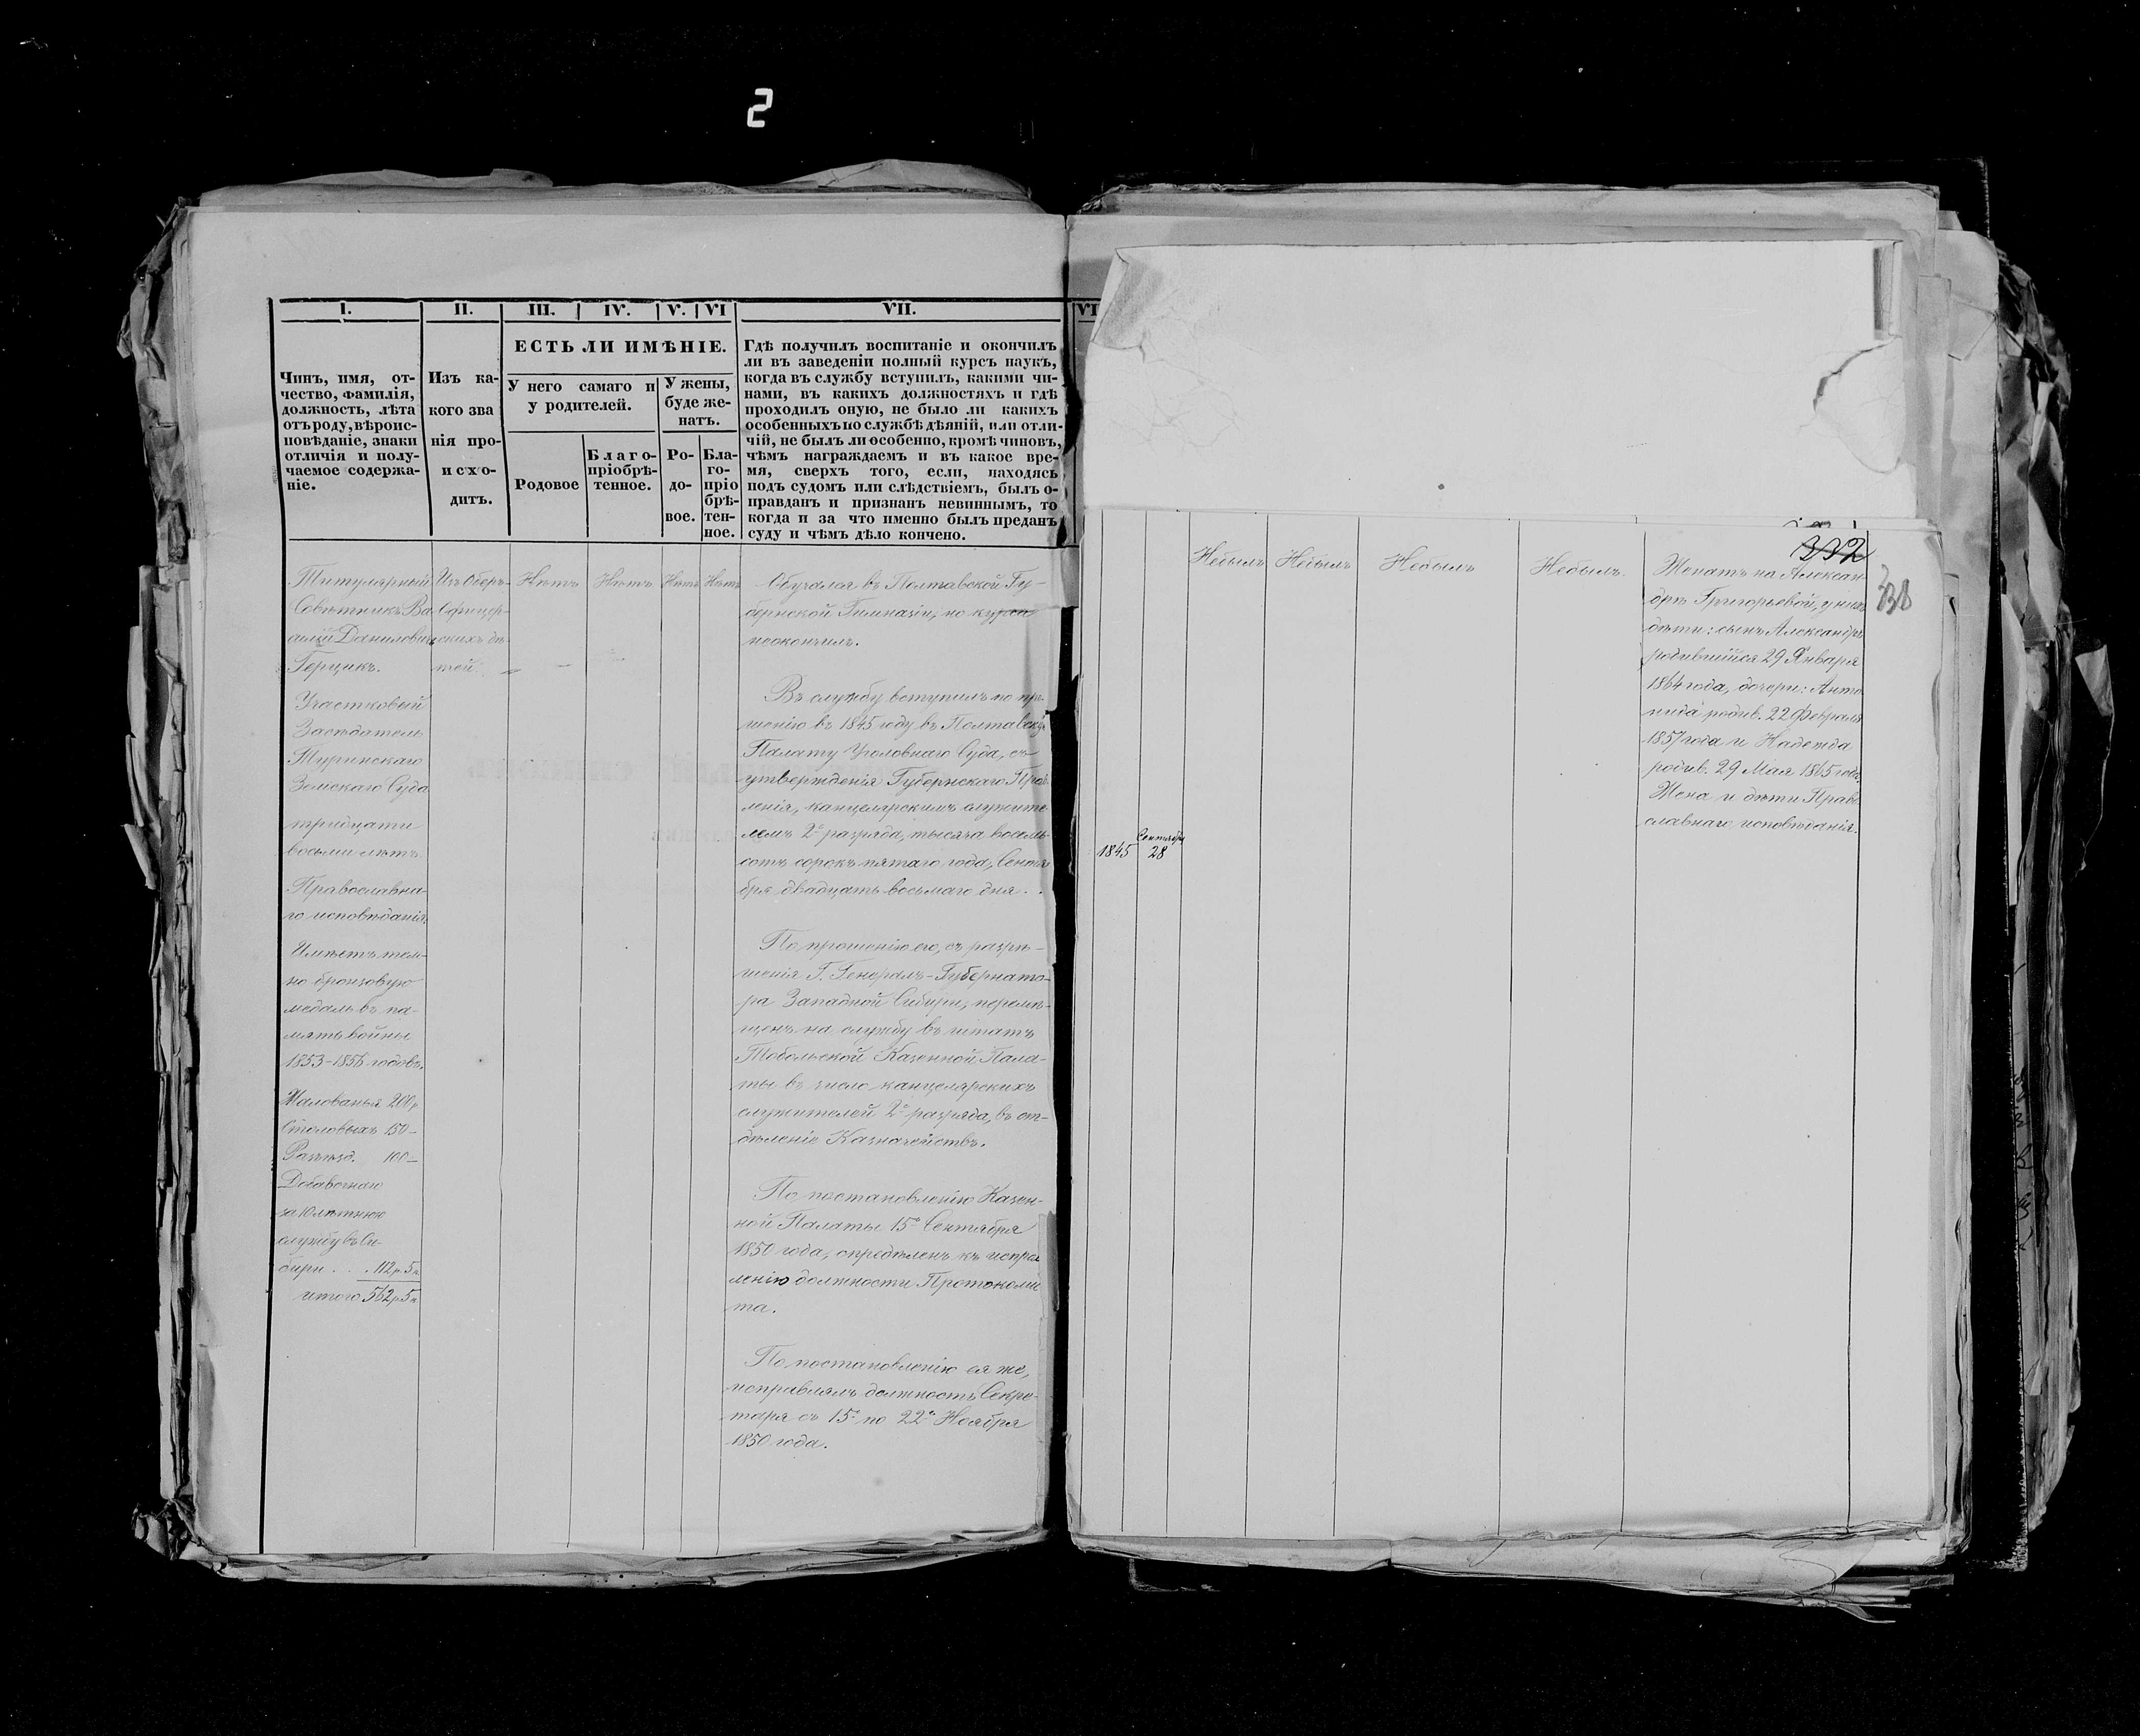 2
I.
II.
III.
IV.
V.
VI
VII.
VI
Чинъ, имя, от-
чество, фамилія,
должность, лѣта
отъ роду, вѣроис-
повѣданіе, знаки
отличія и полу-
чаемое содержа-
ніе.
Изъ ка-
кого зва
нія про-
исхо-
дитъ.
ЕСТЬ ЛИ ИМѢНІЕ.
У него самаго и
у родителей.
У жены,
буде же-
натъ.
Родовое
Благо-
пріобрѣ-
тенное.
Ро-
до-
вое.
Бла-
го-
пріо
брѣ-
тен-
ное.
Гдѣ получилъ воспитаніе и окончилъ
ли въ заведеніи полный курсъ наукъ,
когда въ службу вступилъ, какими чи-
нами, въ какихъ должностяхъ и гдѣ
проходилъ оную, не было ли какихъ
особенныхъ по службѣ дѣяній, или отли-
чій, не былъ ли особенно, кромѣ чиновъ,
чѣмъ награждаемъ и въ какое вре-
мя, сверхъ того, если, находясь
подъ судомъ или слѣдствіемъ, былъ о-
правданъ и признанъ невиннымъ, то
когда и за что именно былъ преданъ
суду и чѣмъ дѣло кончено.
Титулярный
Совѣтникъ Ва
силій Данилович
Герцикъ.
Участковый
Засѣдатель
Туринскаго
Земскаго Суда
тридцати
восьми лѣтъ.
Православна-
го исповѣданія.
Имѣетъ тем-
но бронзовую
медаль въ па-
мять войны
1853-1856 годовъ.
Жалованья 200 р
Столовыхъ 150 -
Разъѣзд. 100 -
Добавочнаго
за 10 лѣтнюю
службу въ Си-
бири . . . 112 р. 5 к
итого 562 р. 5 к
Изъ Оберъ-
Офицер-
скихъ дѣ-
тей.
Нѣтъ
Нѣтъ
Нѣтъ
Нѣтъ
Обучался въ Полтавской Гу-
бернской Гимназіи, но курса
неокончилъ.
Въ службу вступилъ по про-
шенію въ 1845 году въ Полтавскую
Палату Уголовнаго Суда, съ
утвержденія Губернскаго Прав
ленія, канцелярскимъ служите
лемъ 2го разряда, тысяча восемь-
сотъ сорокъ пятаго года, Сентя
бря двадцать восьмаго дня . .
По прошенію его, съ разрѣ-
шенія Г. Генералъ-Губернато-
ра Западной Сибири, перемѣ-
щенъ на службу въ штатъ
Тобольской Казенной Пала-
ты въ число канцелярскихъ
служителей 2го разряда, въ от-
дѣленіе Казначействъ.
По постановленію Казен-
ной Палаты 15го Сентября
1850 года, опредѣленъ къ исправ
ленію должности Протоколис
та.
По постановленію ея же,
исправлялъ должность Секре-
таря съ 15го по 22е Ноября
1850 года.
1845
Сентября
28
Небылъ
Небылъ
Небылъ
Небылъ.
332
Женатъ на Алексан-
дрѣ Григорьевой, у нихъ
дѣти: сынъ Александръ
родившійся 29 Января
1864 года, дочери: Анто-
нида родив. 22 Февраля
1857 года и Надежда
родив. 29 Мая 1865 года.
Жена и дѣти Право
славнаго исповѣданія.